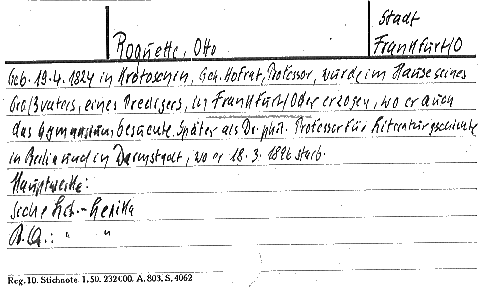 Stadt
Roquette, Otto Frankfurt/O
Geb. 19.4.1824 in Krotoschin, Geh. Hofrat, Professor, wurde im Hause seines
Großvaters, eines Predigers, in Frankfurt/Oder erzogen, wo er auch
das Gymnasium besuchte. Später als Dr. phil. Professor für Literaturgeschichte
in Berlin und in Darmstadt, wo er 18.3.1896 starb.
Hauptwerke:
Siehe
" "
Reg. 10. Stichnote. 1. 50. 232C00. A. 803. S. 4062